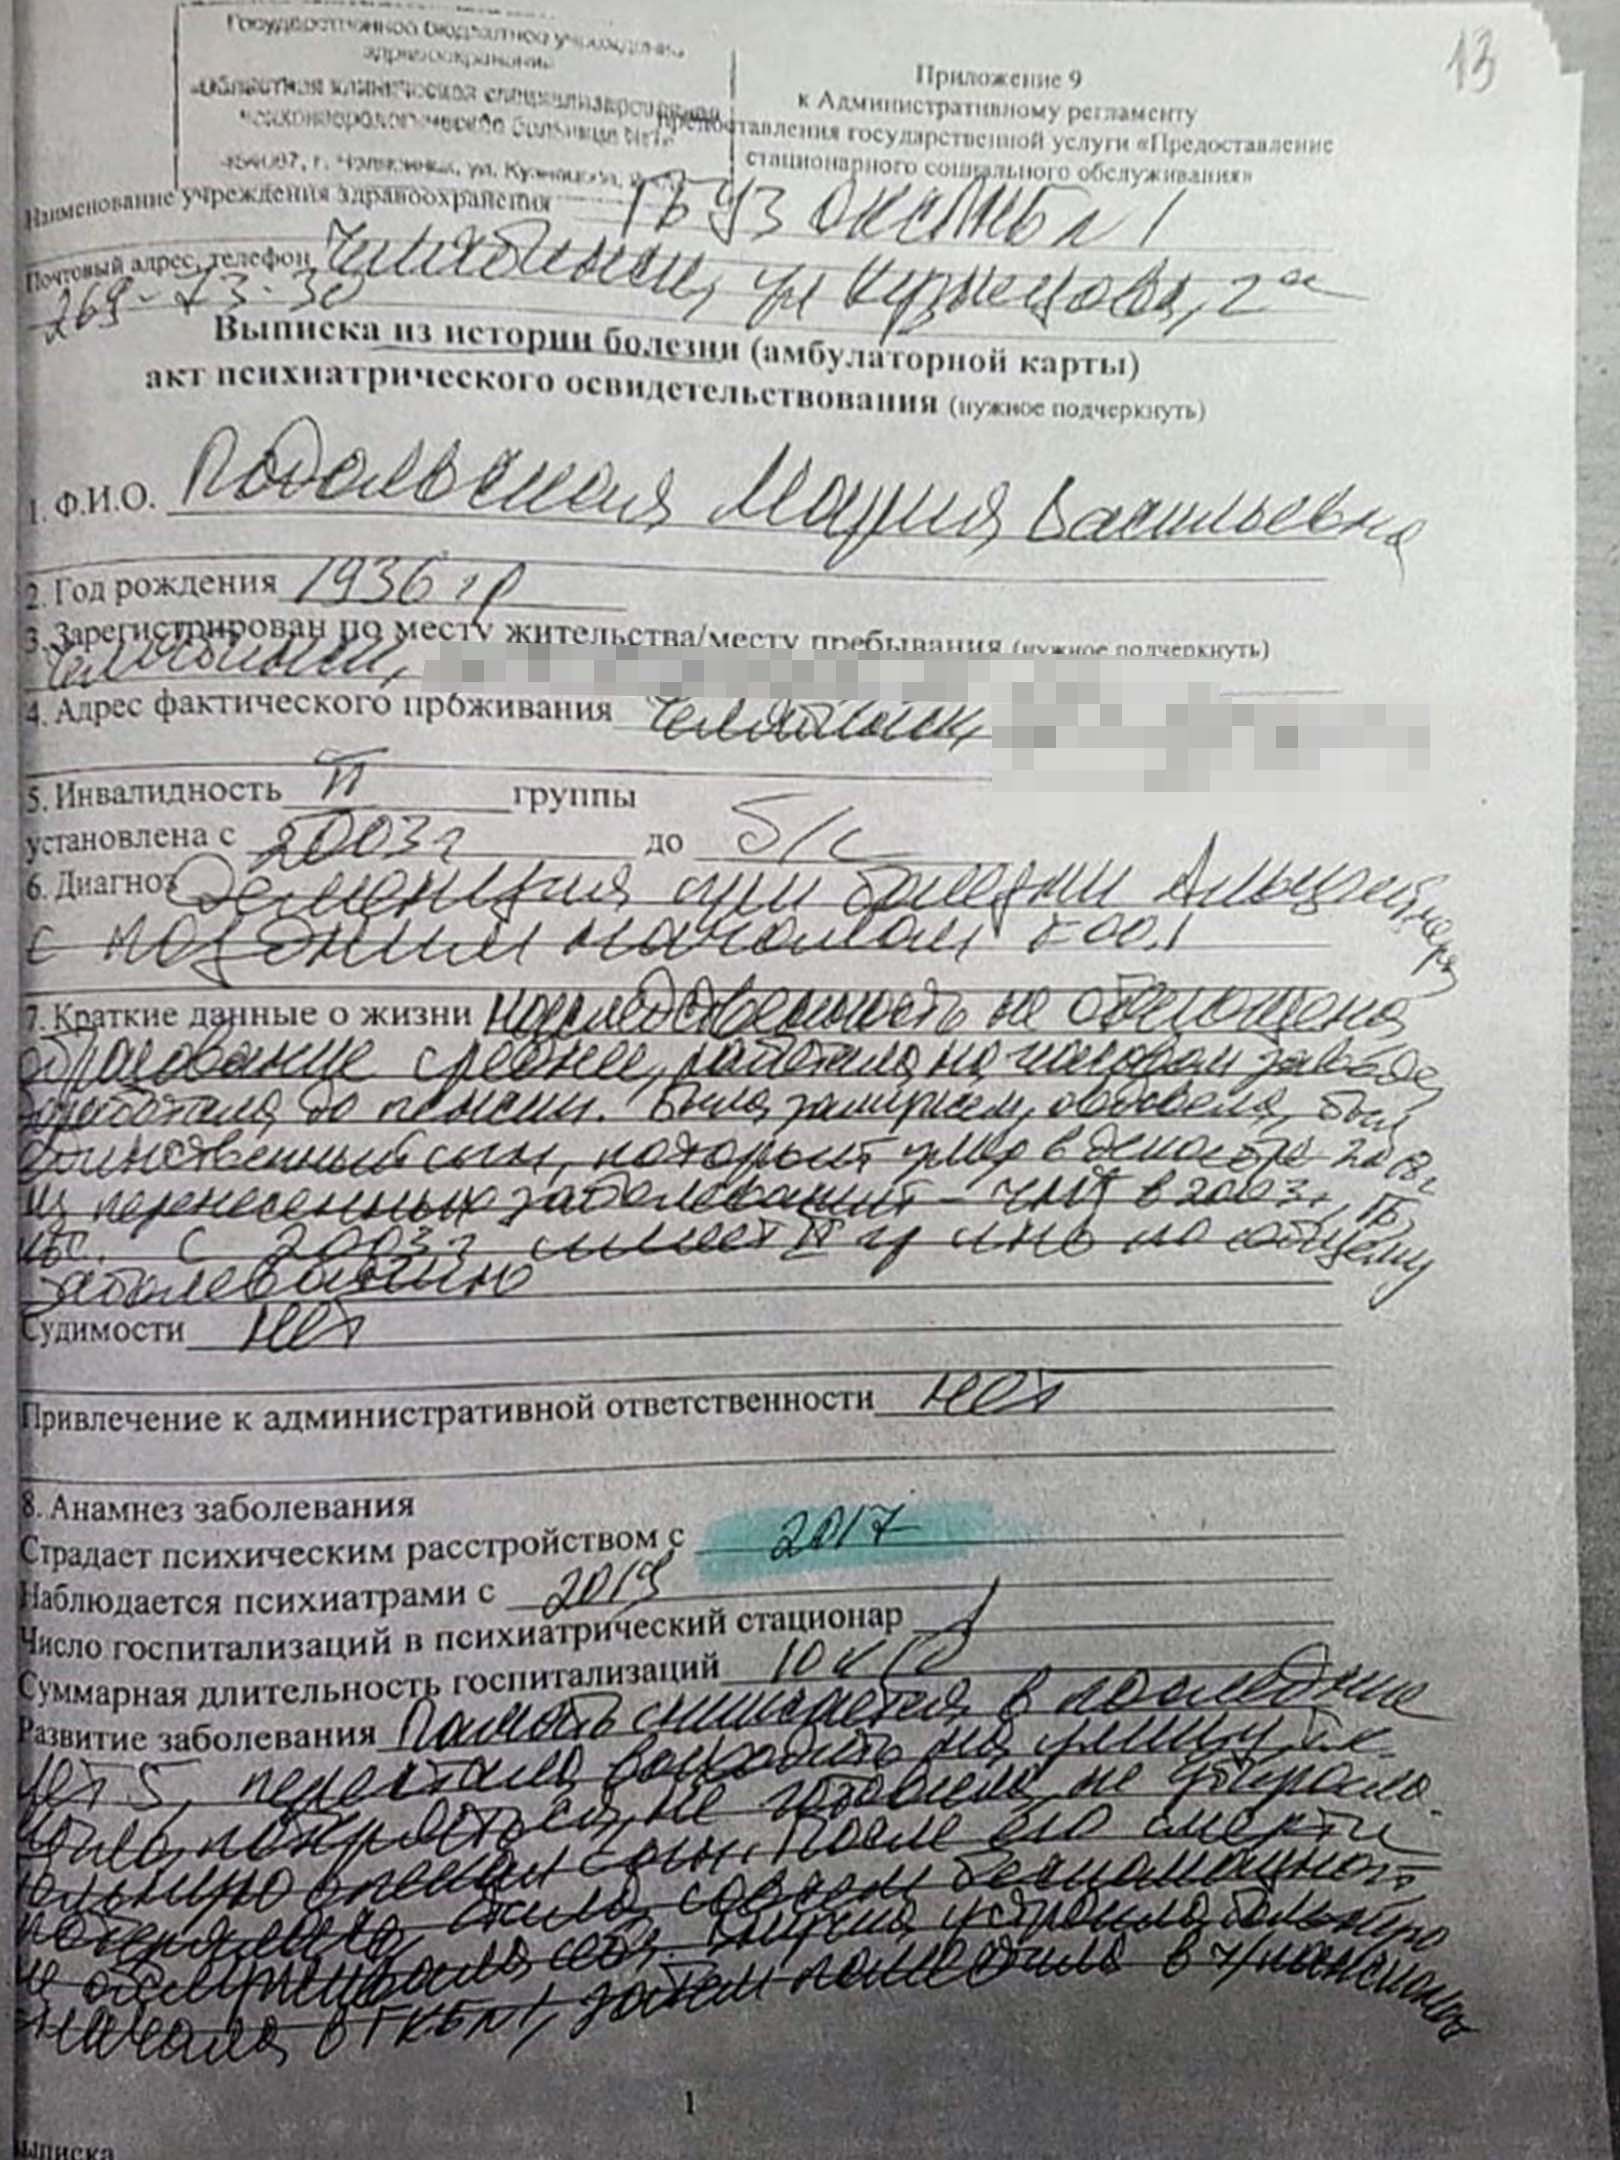 13
Государственное бюджетное учреждение
здравоохранения
«Областная клиническая специализированная
психоневрологическая больница №1»
454087, г. Челябинск, ул. Кузнецова, 2
Приложение 9
к Административному регламенту
предоставления государственной услуги «Предоставление
стационарного социального обслуживания»
Наименование учреждения здравоохранения ГБУЗ ОКСПНБ №1
Почтовый адрес, телефон Челябинск, ул Кузнецова, 2а
269-73-30
Выписка из истории болезни (амбулаторной карты)
акт психиатрического освидетельствования (нужное подчеркнуть)
1. Ф.И.О. Подольская Мария Васильевна
2. Год рождения 1936 гр
3. Зарегистрирован по месту жительства/месту пребывания (нужное подчеркнуть)
Челябинск,
4. Адрес фактического проживания Челябинск,
5. Инвалидность II группы
установлена с 2003г до б/с
6. Диагноз Деменция при болезни Альцгеймера
с поздним началом F00.1
7. Краткие данные о жизни наследственность не отягощена
образование среднее, работала на часовом заводе,
до пенсии. Была замужем, овдовела, был
единственный сын, который умер в декабре 2018г
Из перенесенных заболеваний – ЧМТ в 2003г, ГБ,
ИБС. С 2003г имеет II гр инв по общему
заболеванию
Судимости нет
Привлечение к административной ответственности нет
8. Анамнез заболевания
Страдает психическим расстройством с 2017
Наблюдается психиатрами с 2019
Число госпитализаций в психиатрический стационар 1
Суммарная длительность госпитализаций 10 к/д
Развитие заболевания Память снижается в последние
лет 5, перестала выходить на улицу,
не готовила, не убирала.
сын. После его смерти
стала совсем беспомощной,
не обслуживала себя.
сначала в ГКБ №1, затем поместила в ч/пансионат
1
выписка